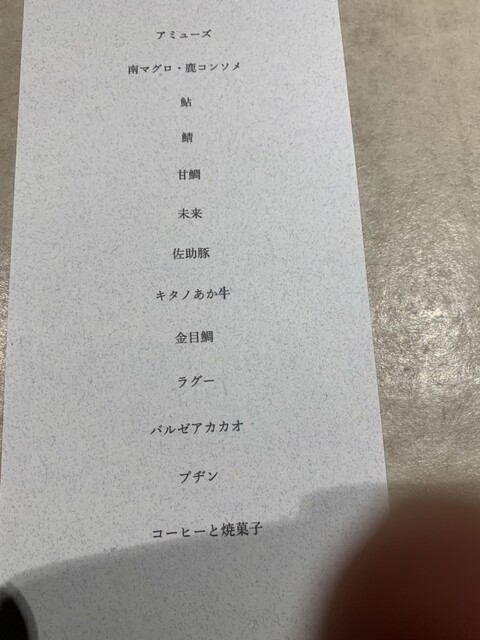 アミューズ
南マグロ・鹿コンソメ
鮎
鯖
甘鯛
未来
佐助豚
キタノあか牛
金目鯛
ラグー
バルゼアカカオ
プヂン
コーヒーと焼菓子